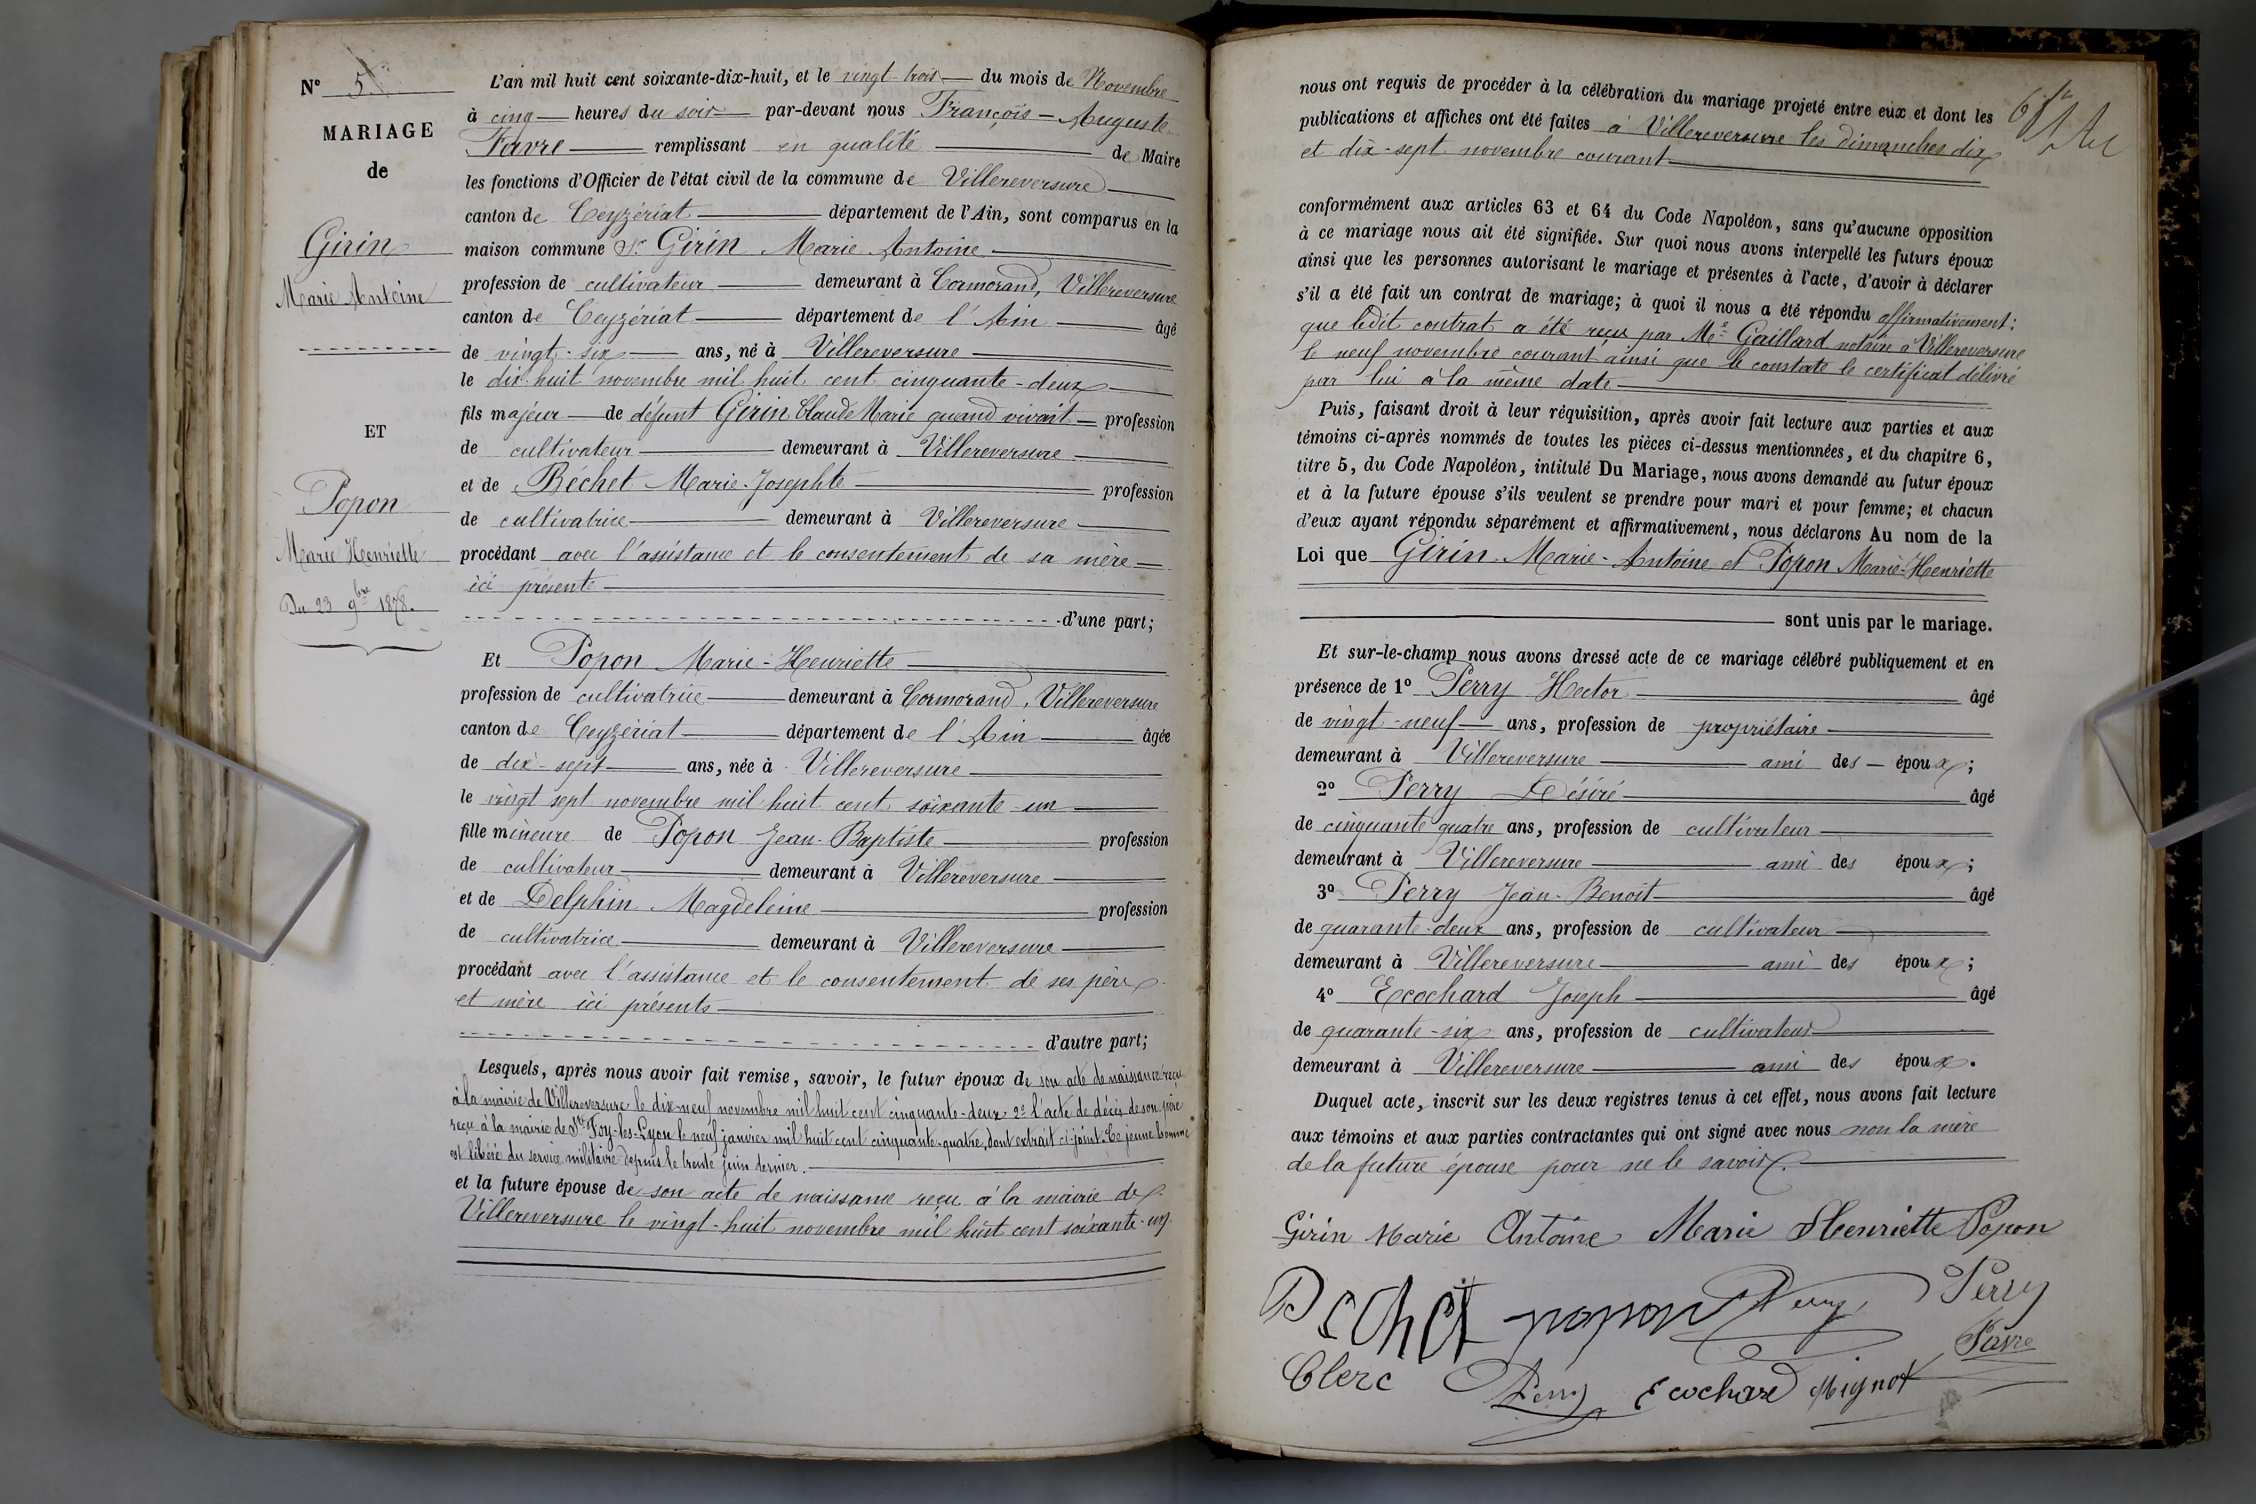 N° 5
MARIAGE
de
Girin
Marie Antoine
ET
Popon
Marie Henriette
Du 23 9bre 1878.
L'an mil huit cent soixante-dix-huit, et le vingt-trois du mois de Novembre
à cinq heures du soir par-devant nous François-Auguste
Favre remplissant en qualité de Maire
les fonctions d'Officier de l'état civil de la commune de Villereversure
canton de Ceyzériat département de l'Ain, sont comparus en la
maison commune Sr Girin Marie Antoine
profession de cultivateur demeurant à Cormorand, Villereversure
canton de Ceyzériat département de l'Ain âgé
de vingt-six ans, né à Villereversure
le dix-huit novembre mil huit cent cinquante-deux
fils majeur de défunt Girin Claude Marie quand vivait profession
de cultivateur demeurant à Villereversure
et de Béchet Marie-Josephte profession
de cultivatrice demeurant à Villereversure
procédant avec l'assistance et le consentement de sa mère
ici présente
d'une part;
Et Popon Marie-Henriette
profession de cultivatrice demeurant à Cormorand, Villereversure
canton de Ceyzériat département de l'Ain âgée
de dix-sept ans, née à Villereversure
le vingt sept novembre mil huit cent soixante-un
fille mineure de Popon Jean-Baptiste profession
de cultivateur demeurant à Villereversure
et de Delphin Magdeleine profession
de cultivatrice demeurant à Villereversure
procédant avec l'assistance et le consentement de ses père
et mère ici présents
d'autre part;
Lesquels, après nous avoir fait remise, savoir, le futur époux de son acte de naissance reçu
à la mairie de Villereversure le dix-neuf novembre mil huit cent cinquante-deux 2° l'acte de décès de son père
reçu à la mairie de Ste Foy-les-Lyon le neuf janvier mil huit cent cinquante-quatre, dont extrait ci-joint. Ce jeune homme
est libéré du service militaire depuis le trente juin dernier.
et la future épouse de son acte de naissance reçu à la mairie de
Villereversure le vingt-huit novembre mil huit cent soixante-un
nous ont requis de procéder à la célébration du mariage projeté entre eux et dont les
publications et affiches ont été faites à Villereversure les dimanches dix
et dix-sept novembre courant
conformément aux articles 63 et 64 du Code Napoléon, sans qu'aucune opposition
à ce mariage nous ait été signifiée. Sur quoi nous avons interpellé les futurs époux
ainsi que les personnes autorisant le mariage et présentes à l'acte, d'avoir à déclarer
s'il a été fait un contrat de mariage; à quoi il nous a été répondu affirmativement:
que ledit contrat a été reçu par Me Gaillard notaire à Villereversure
le neuf novembre courant ainsi que le constate le certificat délivré
par lui à la même date
Puis, faisant droit à leur réquisition, après avoir fait lecture aux parties et aux
témoins ci-après nommés de toutes les pièces ci-dessus mentionnées, et du chapitre 6,
titre 5, du Code Napoléon, intitulé Du Mariage, nous avons demandé au futur époux
et à la future épouse s'ils veulent se prendre pour mari et pour femme; et chacun
d'eux ayant répondu séparément et affirmativement, nous déclarons Au nom de la
Loi que Girin Marie-Antoine et Popon Marie-Henriette
sont unis par le mariage.
Et sur-le-champ nous avons dressé acte de ce mariage célébré publiquement et en
présence de 1° Perry Hector âgé
de vingt-neuf ans, profession de propriétaire
demeurant à Villereversure ami des époux;
2° Perry Désiré âgé
de cinquante quatre ans, profession de cultivateur
demeurant à Villereversure ami des époux;
3° Perry Jean-Benoît âgé
de quarante-deux ans, profession de cultivateur
demeurant à Villereversure ami des époux;
4° Ecochard Joseph âgé
de quarante-six ans, profession de cultivateur
demeurant à Villereversure ami des époux.
Duquel acte, inscrit sur les deux registres tenus à cet effet, nous avons fait lecture
aux témoins et aux parties contractantes qui ont signé avec nous non la mère
de la future épouse pour ne le savoir.
Girin Marie Antoine Marie Henriette Popon
Bechet popon Perry Perry
Favre
Clerc Perry Ecochard Mignot